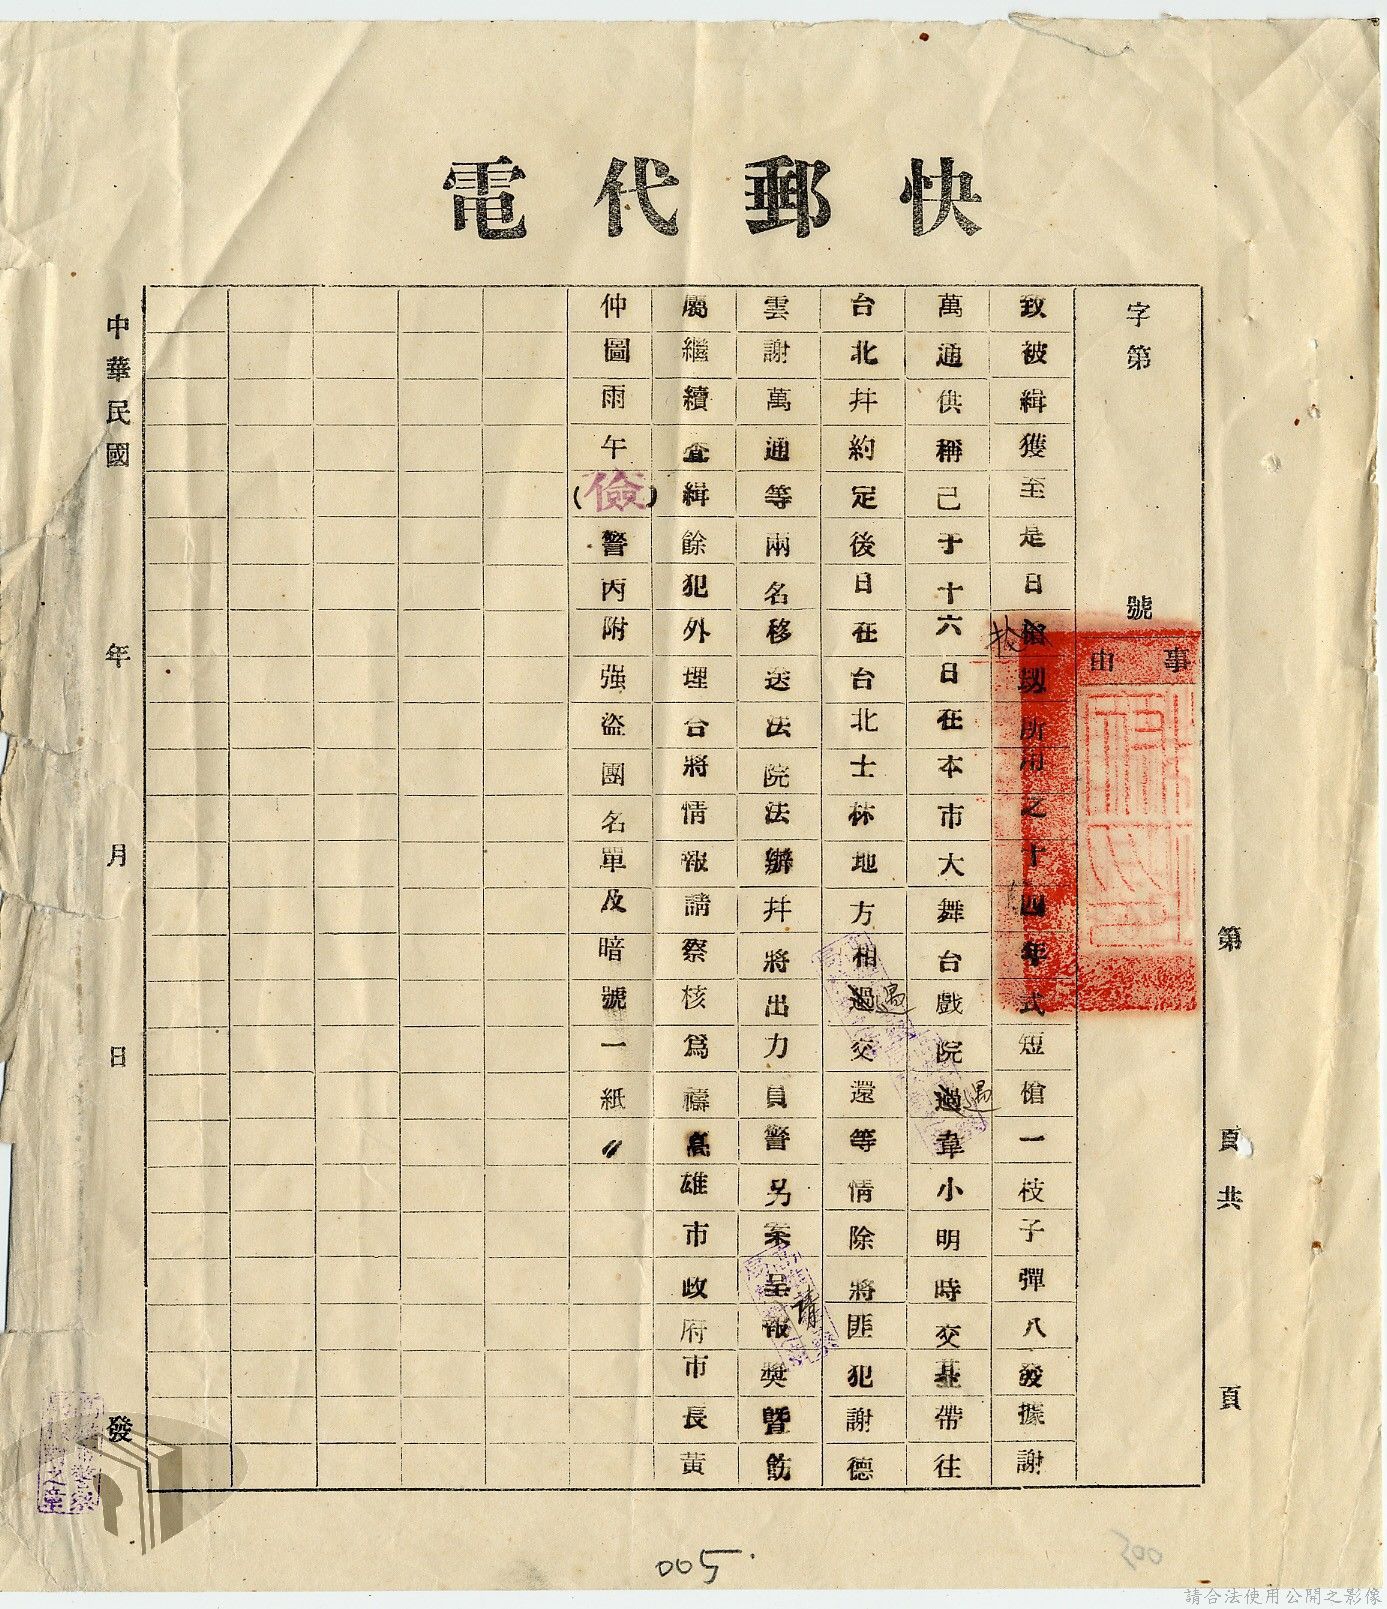 快郵代電
第　頁共　頁
字第　號
事由
致被緝獲至是日槍刧所用之十四年式短槍一枝子彈八發據謝
搶
萬通供稱己于十六日在本市大舞台戲院過韋小明時交其帶往
遇
台北井約定後日在台北士林地方相過交還等情除將匪犯謝德
遇
雲謝萬通等兩名移送法院法辦井將出力員警另案呈報獎暨飭
請
屬繼續查緝餘犯外理合將情報請察核爲禱高雄市政府市長黃
仲圖雨午(儉)警丙附强盜團名單及暗號一紙〃
中華民國　年　月　日　發
005.
500
請合法使用公開之影像